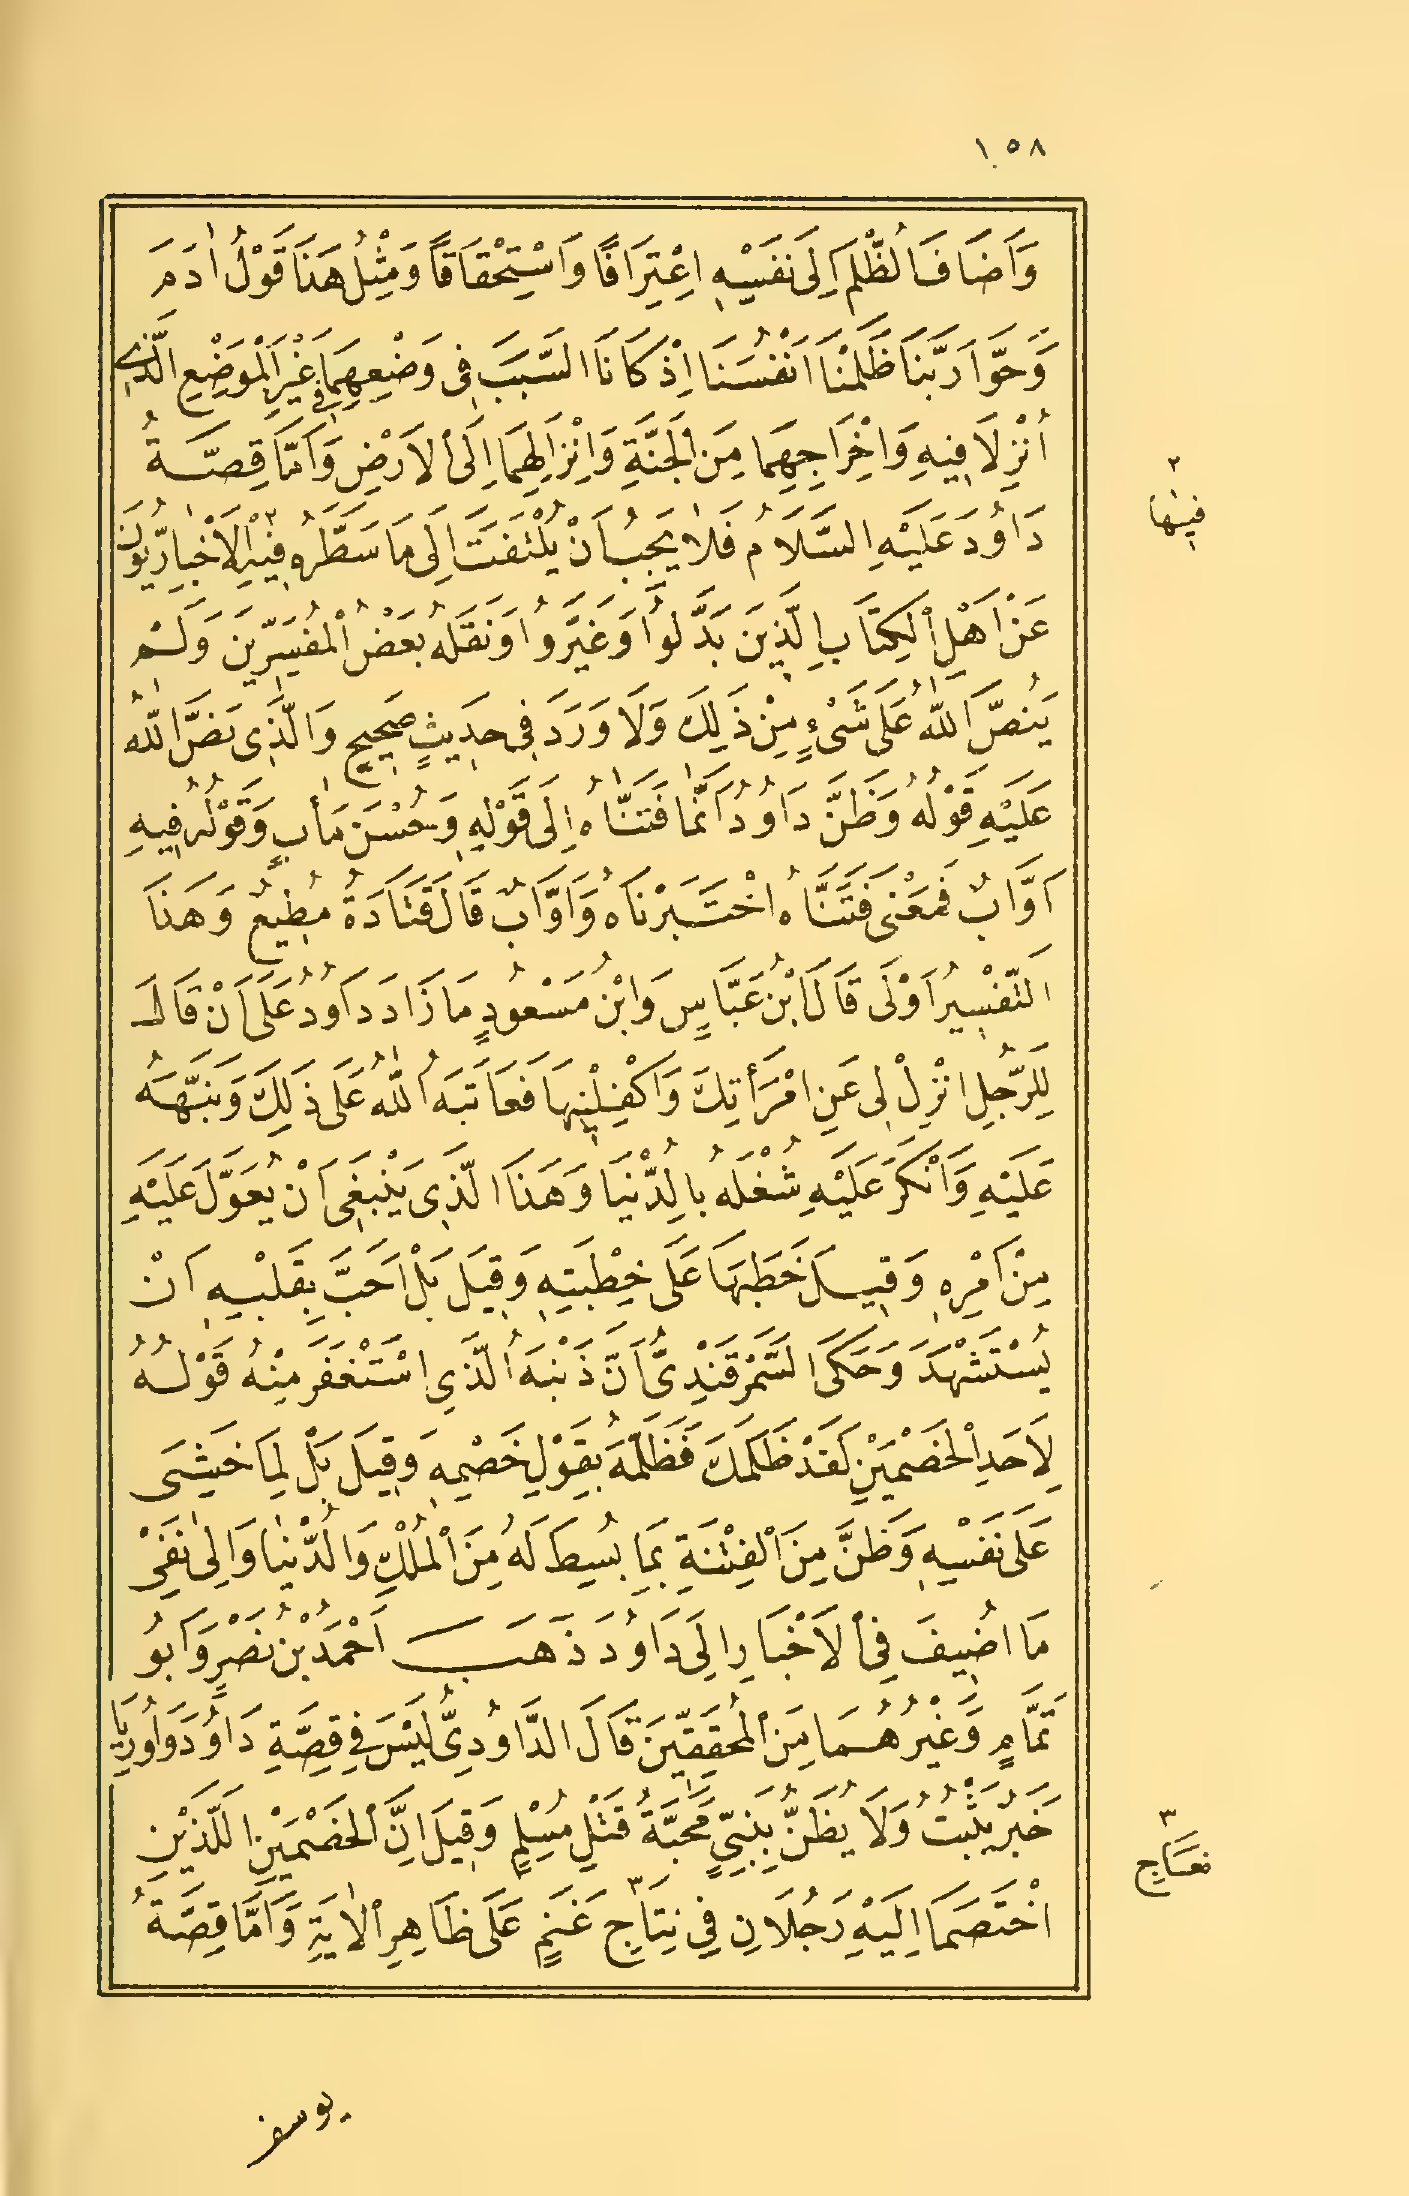 ١٥٨
وَاَضَافَ الظُّلْمَ اِلٰى نَفْسِهِ اِعْتِرَافًا وَاسْتِحْقَاقًا وَمِثْلُ هَذَا قَوْلُ اٰدَمَ
وَحَوَّا رَبَّنَا ظَلَمْنَا اَنْفُسَنَا اِذْ كَانَا السَّبَبَ فِى وَضْعِهِمَا فِى غَيْرِ الْمَوْضِعِ الَّذِى
اُنْزِلَا فِيهِ وَاِخْرَاجِهِمَا مِنَ الْجَنَّةِ وَاِنْزَالِهِمَا اِلَى الْاَرْضِ وَاَمَّا قِصَّةُ
دَاوُدَ عَلَيْهِ السَّلَامُ فَلَا يَجِبُ اَنْ يُلْتَفَتَ اِلَى مَا سَطَّرَهُ فِيْهِ ٢ الْاَخْبَارِيُّونَ
فِيهَا ٢
عَنْ اَهْلِ الْكِتَابِ الَّذِينَ بَدَّلُوا وَغَيَّرُوا وَنَقَلَهُ بَعْضُ الْمُفَسِّرِينَ وَلَمْ
يَنُصَّ اللّٰهُ عَلَى شَىْءٍ مِنْ ذَلِكَ وَلَا وَرَدَ فِى حَدِيثٍ صَحِيحٍ وَالَّذِى نَصَّ اللّٰهُ
عَلَيْهِ قَوْلُهُ وَظَنَّ دَاوُدُ اَنَّمَا فَتَنَّاهُ اِلَى قَوْلِهِ وَحُسْنَ مَاٰبٍ وَقَوْلُهُ فِيهِ
اَوَّابٌ فَمَعْنَى فَتَنَّاهُ اخْتَبَرْنَاهُ وَاَوَّابٌ قَالَ قَتَادَةُ مُطِيعٌ وَهَذَا
التَّفْسِيرُ اَوْلَى قَالَ ابْنُ عَبَّاسٍ وَابْنُ مَسْعُودٍ مَا زَادَ دَاوُدُ عَلَى اَنْ قَالَ
لِلرَّجُلِ انْزِلْ لِى عَنِ امْرَأَتِكَ وَاَكْفِلْنِيهَا فَعَاتَبَهُ اللّٰهُ عَلَى ذَلِكَ وَنَبَّهَهُ
عَلَيْهِ وَاَنْكَرَ عَلَيْهِ شُغْلَهُ بِالدُّنْيَا وَهَذَا الَّذِى يَنْبَغِى اَنْ يُعَوَّلَ عَلَيْهِ
مِنْ اَمْرِهِ وَقِيلَ خَطَبَهَا عَلَى خِطْبَتِهِ وَقِيلَ بَلْ اَحَبَّ بِقَلْبِهِ اَنْ
يُسْتَشْهَدَ وَحَكَى السَّمَرْقَنْدِىُّ اَنَّ ذَنْبَهُ الَّذِى اسْتَغْفَرَ مِنْهُ قَوْلُهُ
لِاَحَدِ الْخَصْمَيْنِ لَقَدْ ظَلَمَكَ فَظَلَّمَهُ بِقَوْلِ خَصْمِهِ وَقِيلَ بَلْ لِمَا خَشِىَ
عَلَى نَفْسِهِ وَظَنَّ مِنَ الْفِتْنَةِ بِمَا بُسِطَ لَهُ مِنَ الْمُلْكِ وَالدُّنْيَا وَاِلَى نَفْىِ
مَا اُضِيفَ فِى الْاَخْبَارِ اِلَى دَاوُدَ ذَهَبَ اَحْمَدُ بْنُ نَصْرٍ وَاَبُو
تَمَّامٍ وَغَيْرُهُمَا مِنَ الْمُحَقِّقِينَ قَالَ الدَّاوُدِىُّ لَيْسَ فِى قِصَّةِ دَاوُدَ وَاُورِيَا
خَبَرٌ يَثْبُتُ وَلَا يُظَنُّ بِنَبِىٍّ مَحَبَّةُ قَتْلِ مُسْلِمٍ وَقِيلَ اِنَّ الْخَصْمَيْنِ اللَّذَيْنِ
اخْتَصَمَا اِلَيْهِ رَجُلَانِ فِى نِتَاجِ ٣ غَنَمٍ عَلَى ظَاهِرِ الْاٰيَةِ وَاَمَّا قِصَّةُ
نِعَاجِ ٣
يوسف